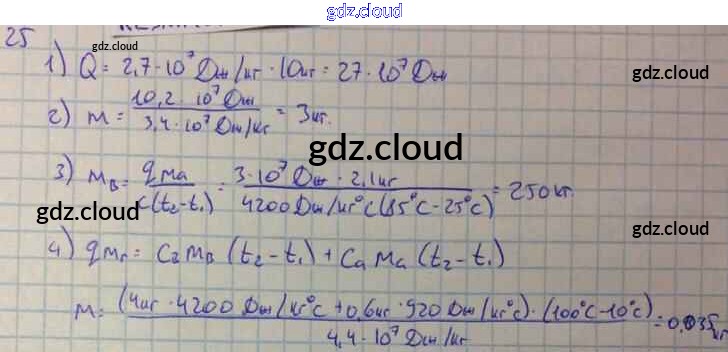 gdz.cloud
25
gdz.cloud
1) Q = 2,7 · 10⁷ Дж/кг · 10кг = 27 · 10⁷ Дж
gdz.cloud
2) m = 10,2 · 10⁷ Дж / 3,4 · 10⁷ Дж/кг = 3кг.
gdz.cloud
3) mв = qma / c(t₂-t₁) = 3 · 10⁷ Дж · 2,1кг / 4200 Дж/кг°C (85°C - 25°C) = 250кг.
gdz.cloud
gdz.cloud
4) qmг = C₂mв (t₂-t₁) + Cama (t₂-t₁)
m = (4кг · 4200 Дж/кг°C + 0,6кг · 920 Дж/кг°C) · (100°C - 10°C) / 4,4 · 10⁷ Дж/кг = 0,035кг
gdz.cloud